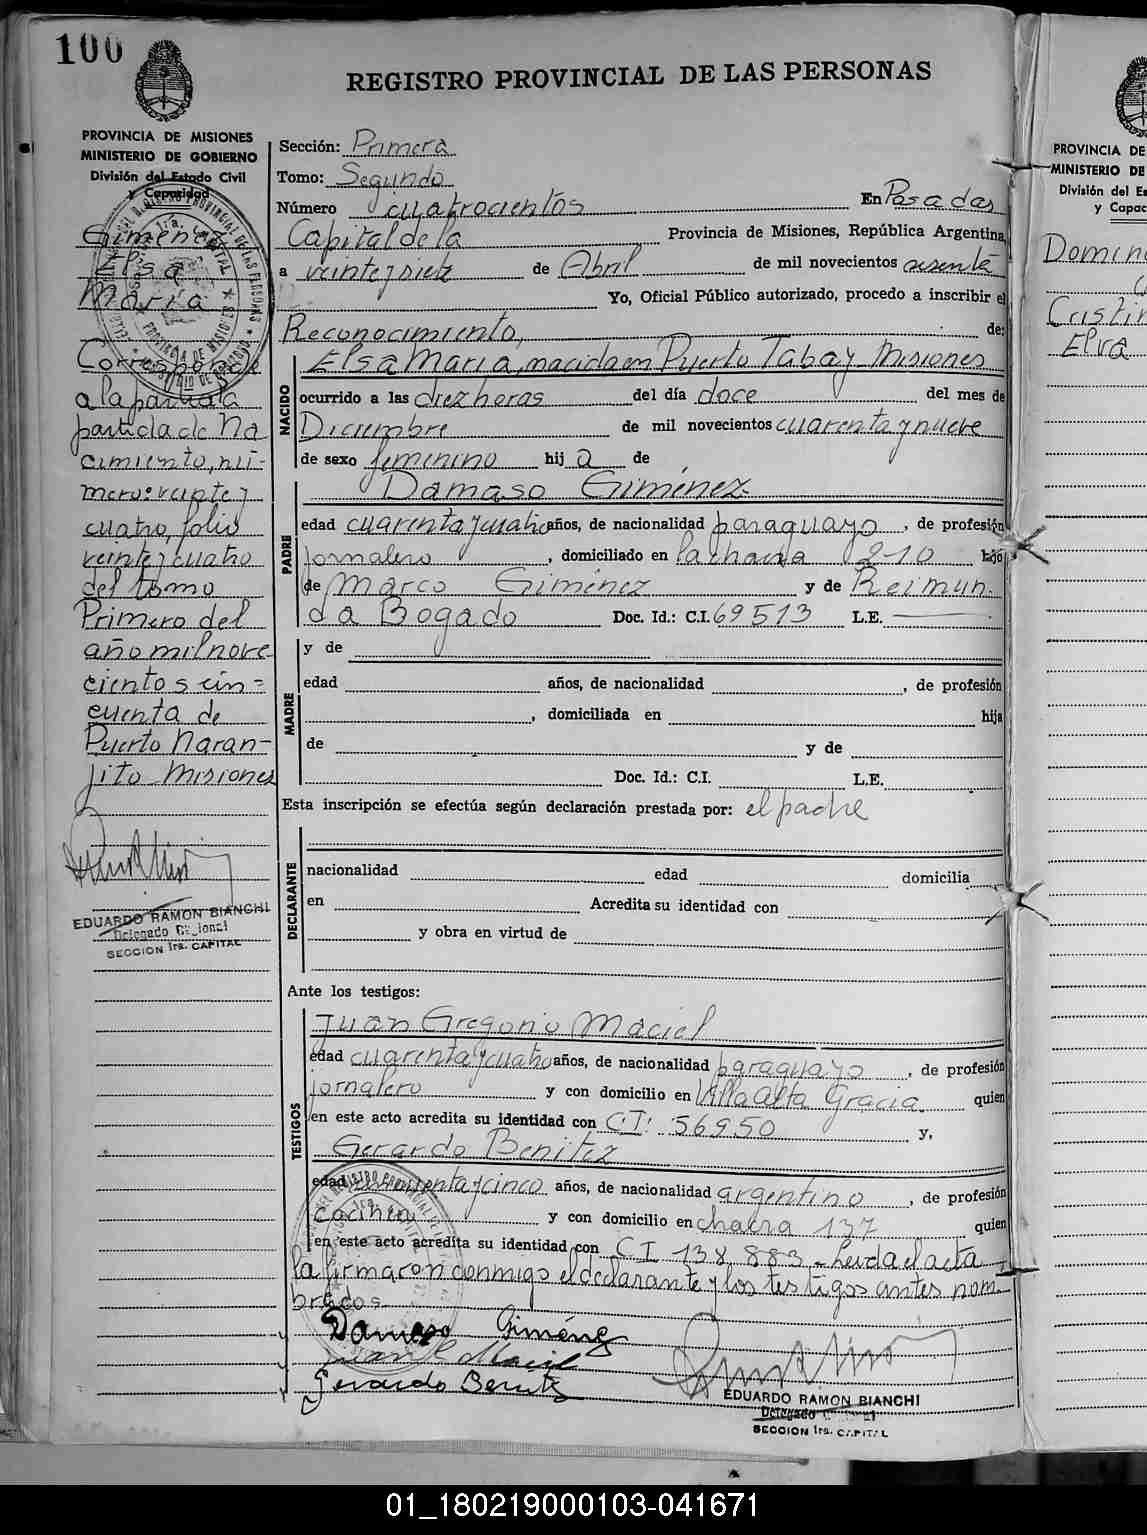 100
REGISTRO PROVINCIAL DE LAS PERSONAS
PROVINCIA DE MISIONES
MINISTERIO DE GOBIERNO
División del Estado Civil
y Capacidad
Gimenez
Elsa
Maria
Corresponde
a la
partida de Na
cimiento, nú-
mero: veinte y
cuatro, folio
veinte y cuatro
del tomo
Primero del
año mil nove
cientos cin=
cuenta de
Puerto Naran-
jito Misiones
EDUARDO RAMON BIANCHI
Delegado
SECCION 1ra. CAPITAL
Sección: Primera
Tomo: Segundo
Número cuatrocientos En Posadas
Capital de la Provincia de Misiones, República Argentina,
a veinte y siete de Abril de mil novecientos sesenta
Yo, Oficial Público autorizado, procedo a inscribir el
Reconocimiento, de:
NACIDO
Elsa Maria, nacida en Puerto Tabay Misiones
ocurrido a las diez horas del día doce del mes de
Diciembre de mil novecientos cuarenta y nueve
de sexo femenino hij a de
PADRE
Damaso Giménez
edad cuarenta y cuatro años, de nacionalidad paraguayo, de profesión
jornalero, domiciliado en la chacra 210 hijo
de Marco Giménez y de Reimun-
da Bogado Doc. Id.: C.I. 69513 L.E.
MADRE
y de
edad años, de nacionalidad , de profesión
, domiciliada en hija
de y de
Doc. Id.: C.I. L.E.
Esta inscripción se efectúa según declaración prestada por: el padre
DECLARANTE
nacionalidad edad domicilia
en Acredita su identidad con
y obra en virtud de
Ante los testigos:
TESTIGOS
Juan Gregorio Maciel
edad cuarenta y cuatro años, de nacionalidad paraguayo, de profesión
jornalero y con domicilio en Villa Alta Gracia quien
en este acto acredita su identidad con C.I: 56950 y,
Gerardo Benitez
edad y cinco años, de nacionalidad argentino, de profesión
y con domicilio en chacra 137 quien
en este acto acredita su identidad con CI 138.883 - Leida el acta
la firmaron conmigo el declarante y los testigos antes nom-
brados
Damaso Giménez
Juan G Maciel
Gerardo Benitez
EDUARDO RAMON BIANCHI
Delegado
SECCION 1ra. CAPITAL
PROVINCIA DE
MINISTERIO DE
División del Es
y Capac
Doming
Cristin
Elva
01_180219000103-041671